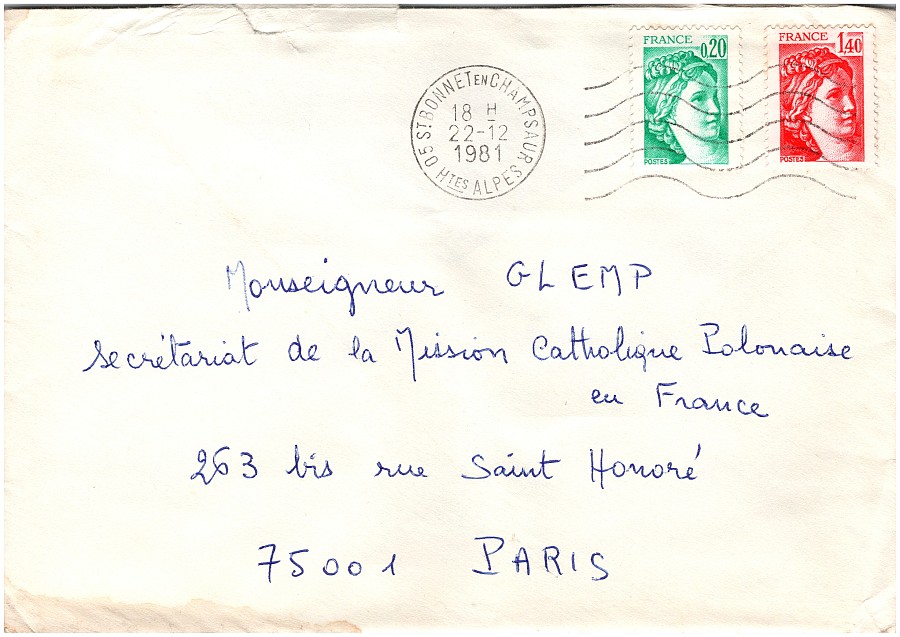 FRANCE 0,20
POSTES
FRANCE 1,40
POSTES
05 ST BONNET EN CHAMPSAUR
18 H
22-12
1981
HTES ALPES
Monseigneur GLEMP
secrétariat de la Mission Catholique Polonaise
en France
263 bis rue Saint Honoré
75001 PARIS